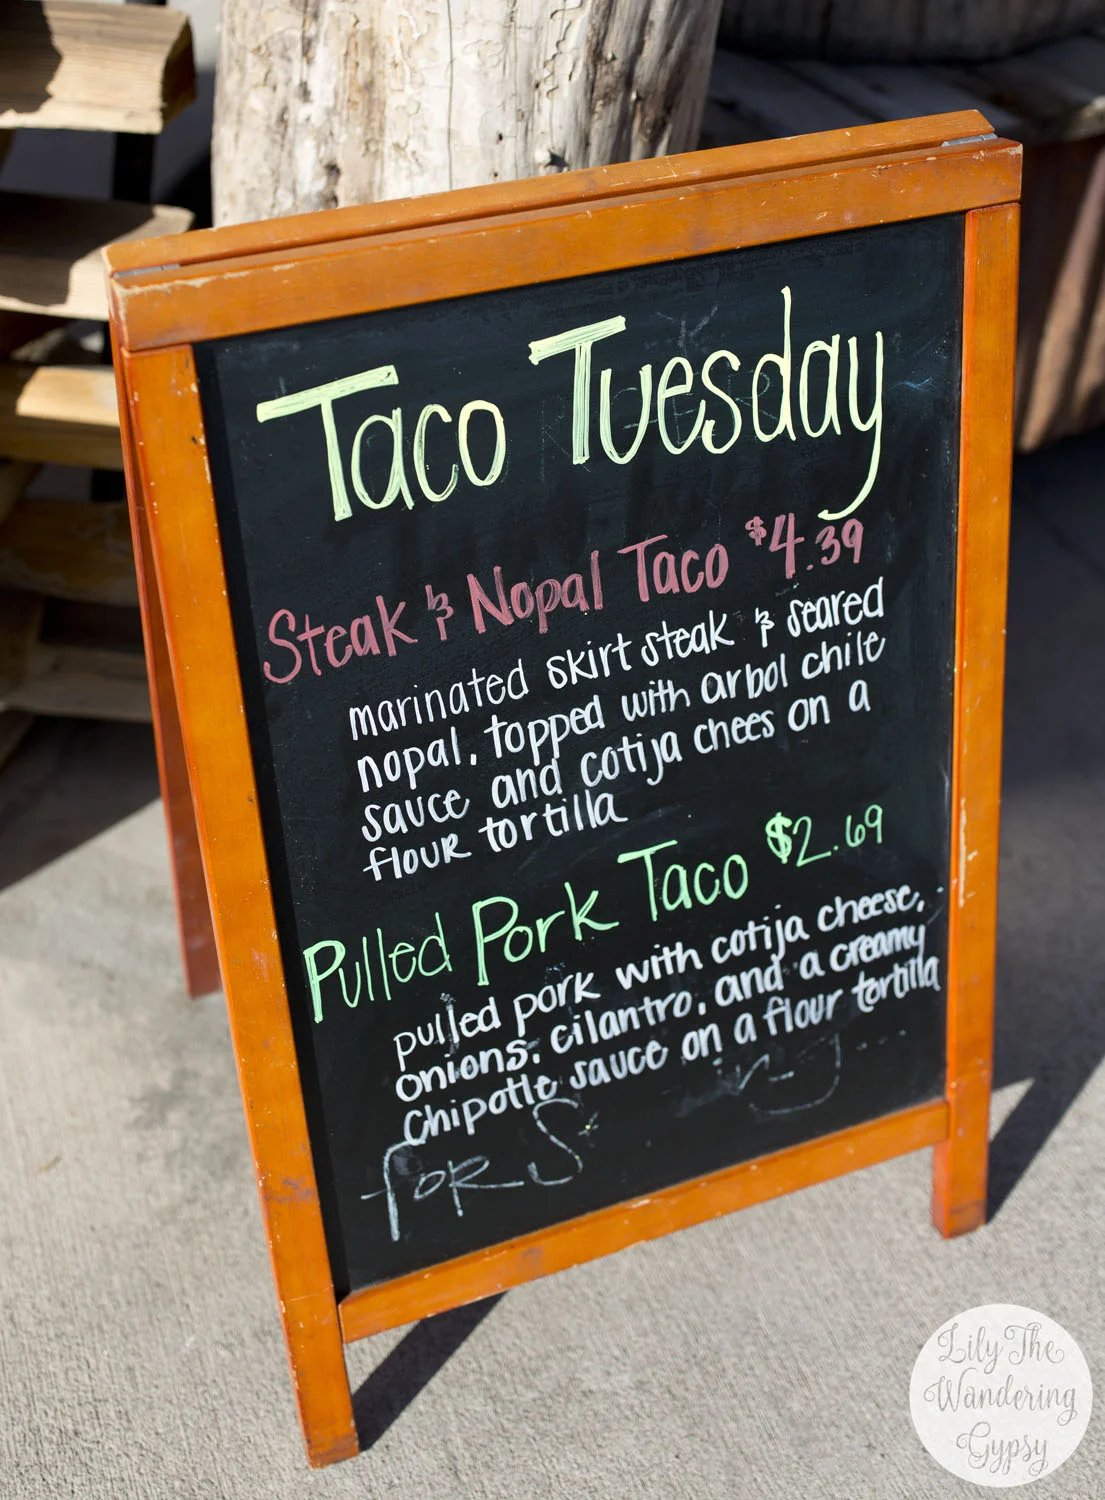 Taco Tuesday
Steak & Nopal Taco $4.39
marinated skirt steak & seared
nopal, topped with arbol chile
sauce and cotija chees on a
flour tortilla
Pulled Pork Taco $2.69
pulled pork with cotija cheese,
onions, cilantro, and a creamy
Chipotle sauce on a flour tortilla
for
Lily The
Wandering
Gypsy